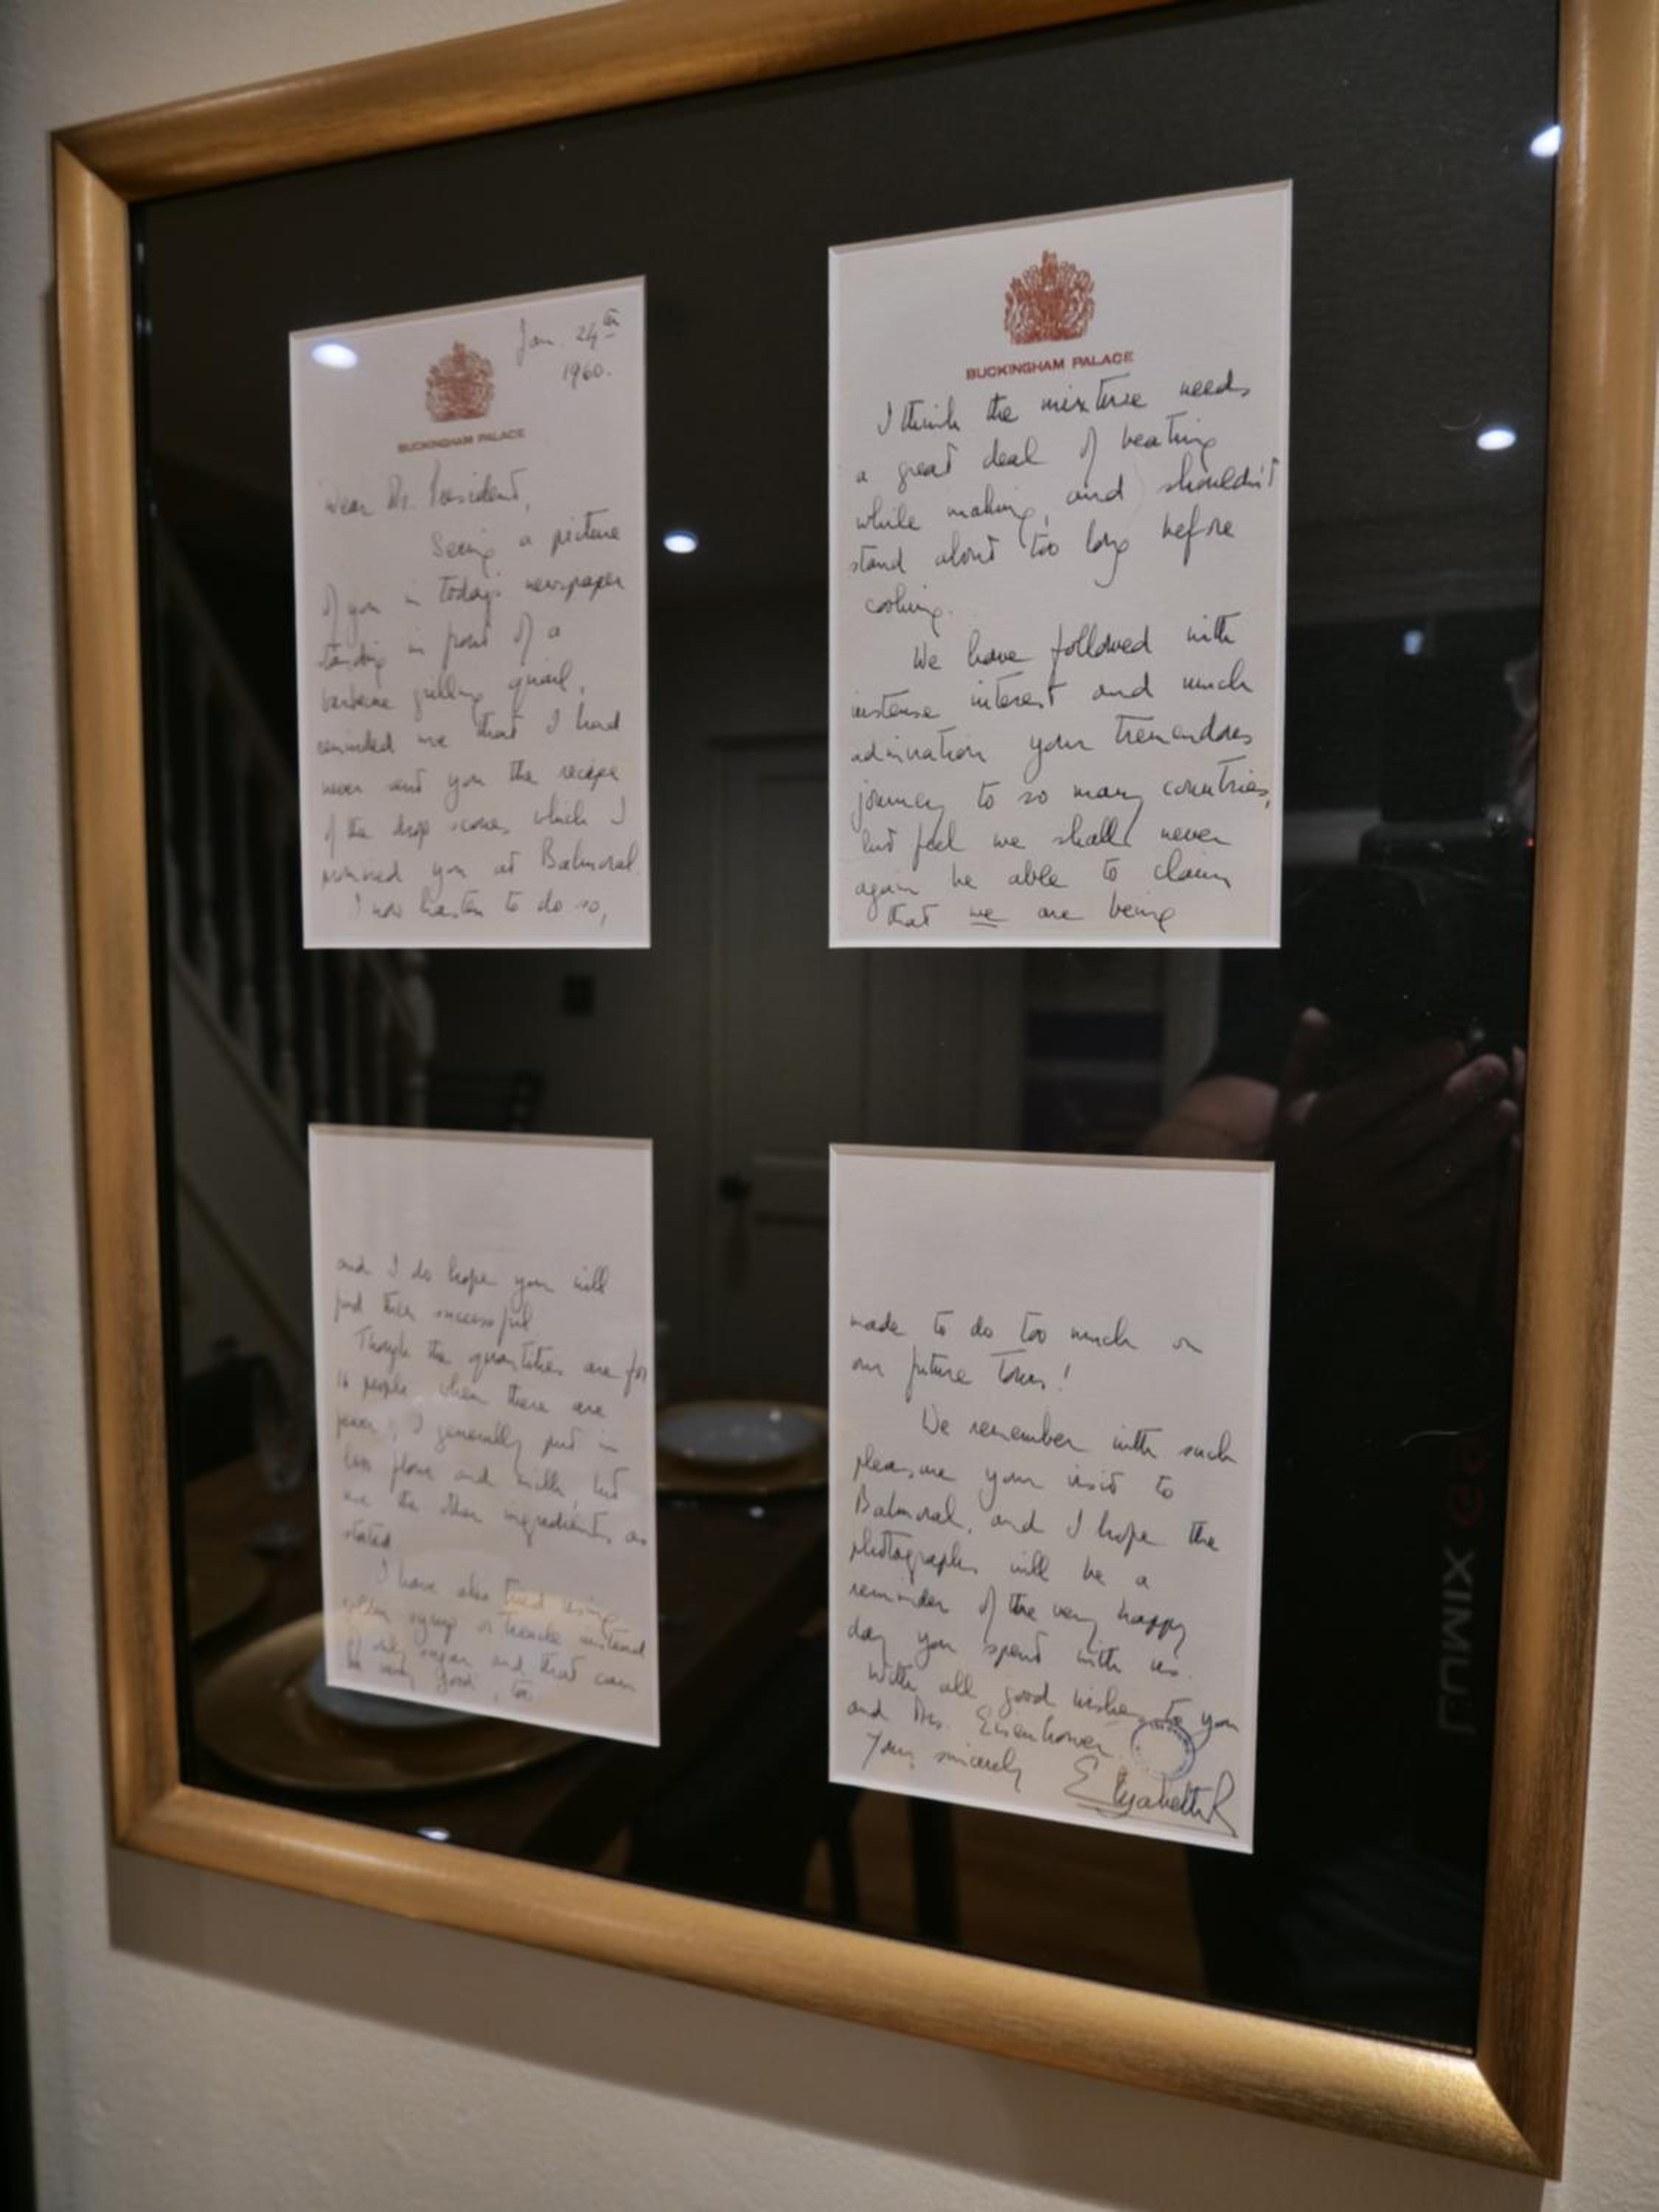 Jan. 24th
1960.
BUCKINGHAM PALACE
Dear Mr. President,
Seeing a picture
of you in today's newspaper
standing in front of a
barbecue grilling quail,
reminded me that I had
never sent you the recipe
of the drop scones which I
promised you at Balmoral
I now hasten to do so,
and I do hope you will
find them successful
Though the quantities are for
16 people, when there are
fewer, I generally put in
less flour and milk, but
use the other ingredients as
stated
I have also tried using
golden syrup or treacle instead
of only sugar and that can
be very good, too
BUCKINGHAM PALACE
I think the mixture needs
a great deal of beating
while making, and shouldn't
stand about too long before
cooking.
We have followed with
intense interest and much
admiration your tremendous
journey to so many countries,
but feel we shall never
again be able to claim
that we are being
made to do too much on
our future tours!
We remember with such
pleasure your visit to
Balmoral, and I hope the
photographs will be a
reminder of the very happy
day you spent with us.
With all good wishes to you
and Mrs. Eisenhower.
Yours sincerely
Elizabeth R
LUMIX G9